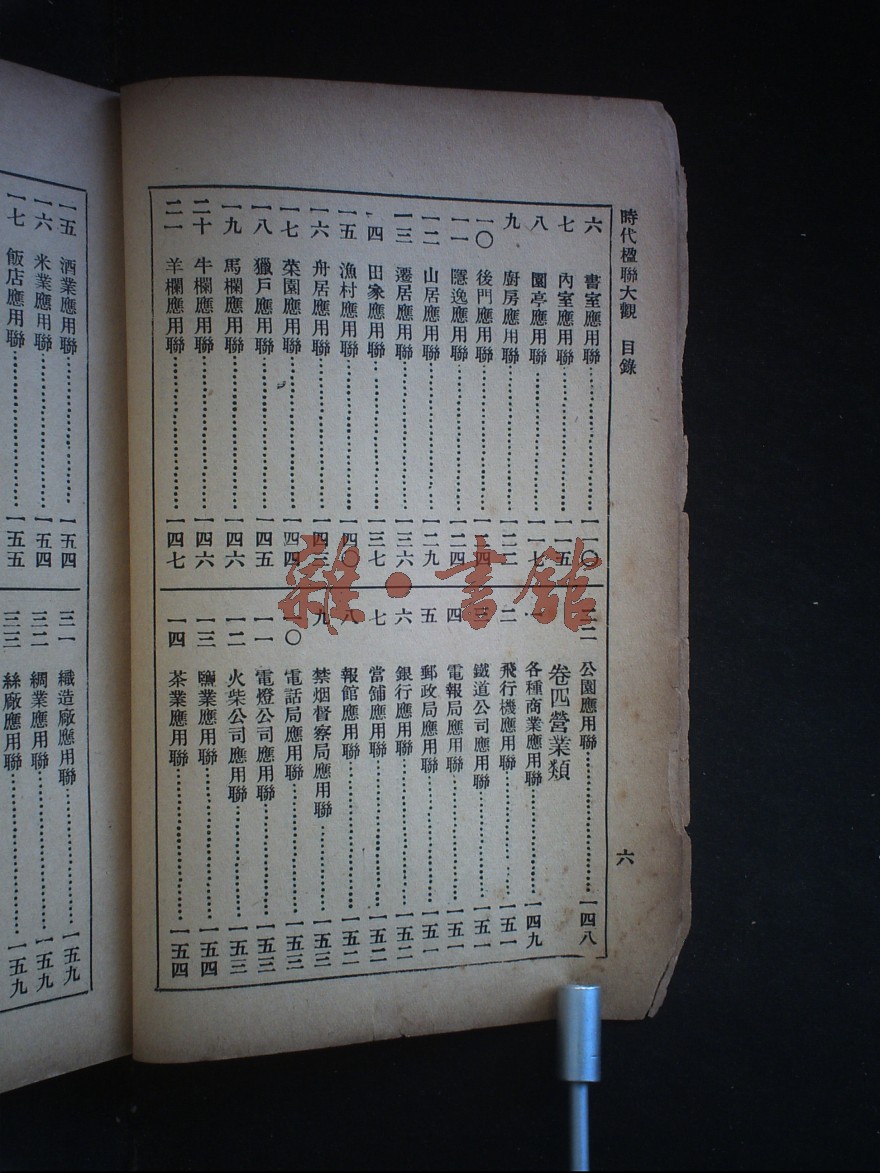 時代楹聯大觀 目錄
六
六 書室應用聯……一一〇
七 內室應用聯……一一五
八 園亭應用聯……一一七
九 廚房應用聯……一二二
一〇 後門應用聯……一二四
一一 隱逸應用聯……一二四
一二 山居應用聯……一二九
一三 遷居應用聯……一三六
一四 田家應用聯……一三七
一五 漁村應用聯……一四〇
一六 舟居應用聯……一四三
一七 菜園應用聯……一四四
一八 獵戶應用聯……一四五
一九 馬欄應用聯……一四六
二十 牛欄應用聯……一四六
二一 羊欄應用聯……一四七
二二 公園應用聯……一四八
卷四營業類
一 各種商業應用聯……一四九
二 飛行機應用聯……一五一
三 鐵道公司應用聯……一五一
四 電報局應用聯……一五一
五 郵政局應用聯……一五一
六 銀行應用聯……一五二
七 當舖應用聯……一五二
八 報館應用聯……一五二
九 禁烟督察局應用聯……一五三
一〇 電話局應用聯……一五三
一一 電燈公司應用聯……一五三
一二 火柴公司應用聯……一五三
一三 鹽業應用聯……一五四
一四 茶業應用聯……一五四
一五 酒業應用聯……一五四
一六 米業應用聯……一五四
一七 飯店應用聯……一五五
三一 織造廠應用聯……一五九
三二 綢業應用聯……一五九
三三 絲廠應用聯……一五九
雜·書館